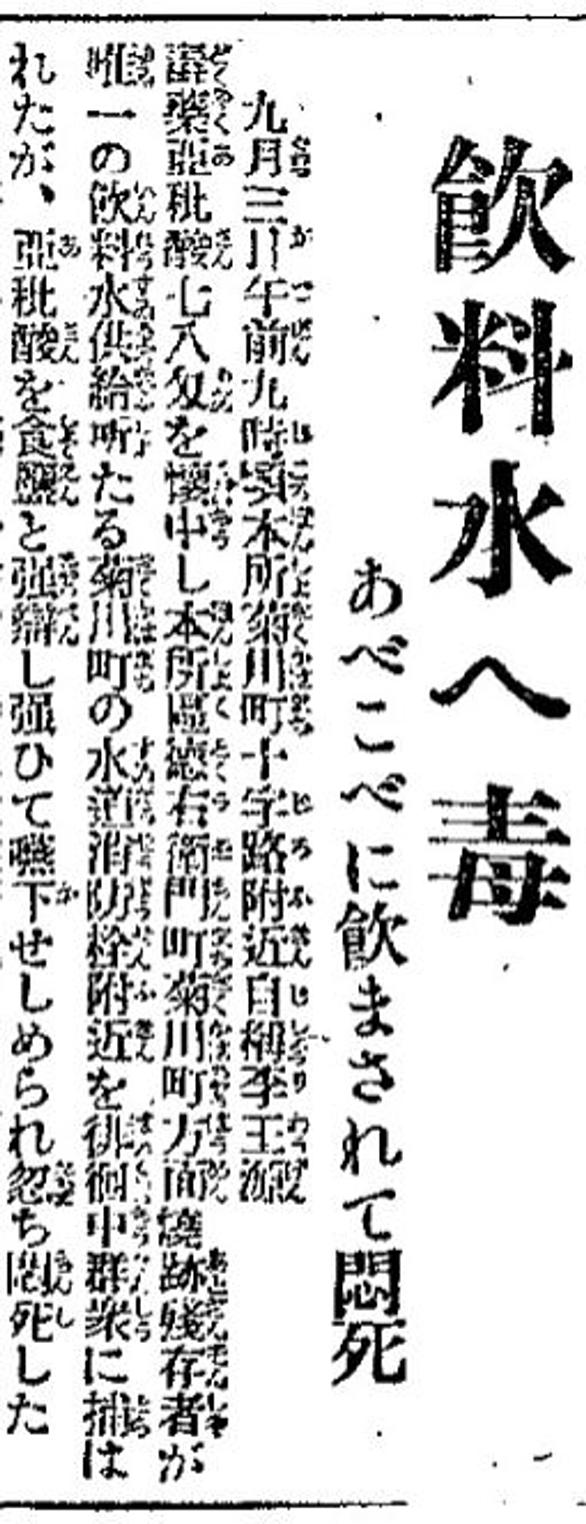 飮料水へ毒
あべこべに飮まされて悶死
九月三日午前九時頃本所菊川町十字路附近自稱李王源
毒藥亞砒酸七八匁を懷中し本所區德右衛門町菊川町方面燒跡殘存者が
唯一の飮料水供給所たる菊川町の水道消防栓附近を徘徊中群衆に捕は
れたが、亞砒酸を食鹽と强辯し强ひて嚥下せしめられ忽ち悶死した